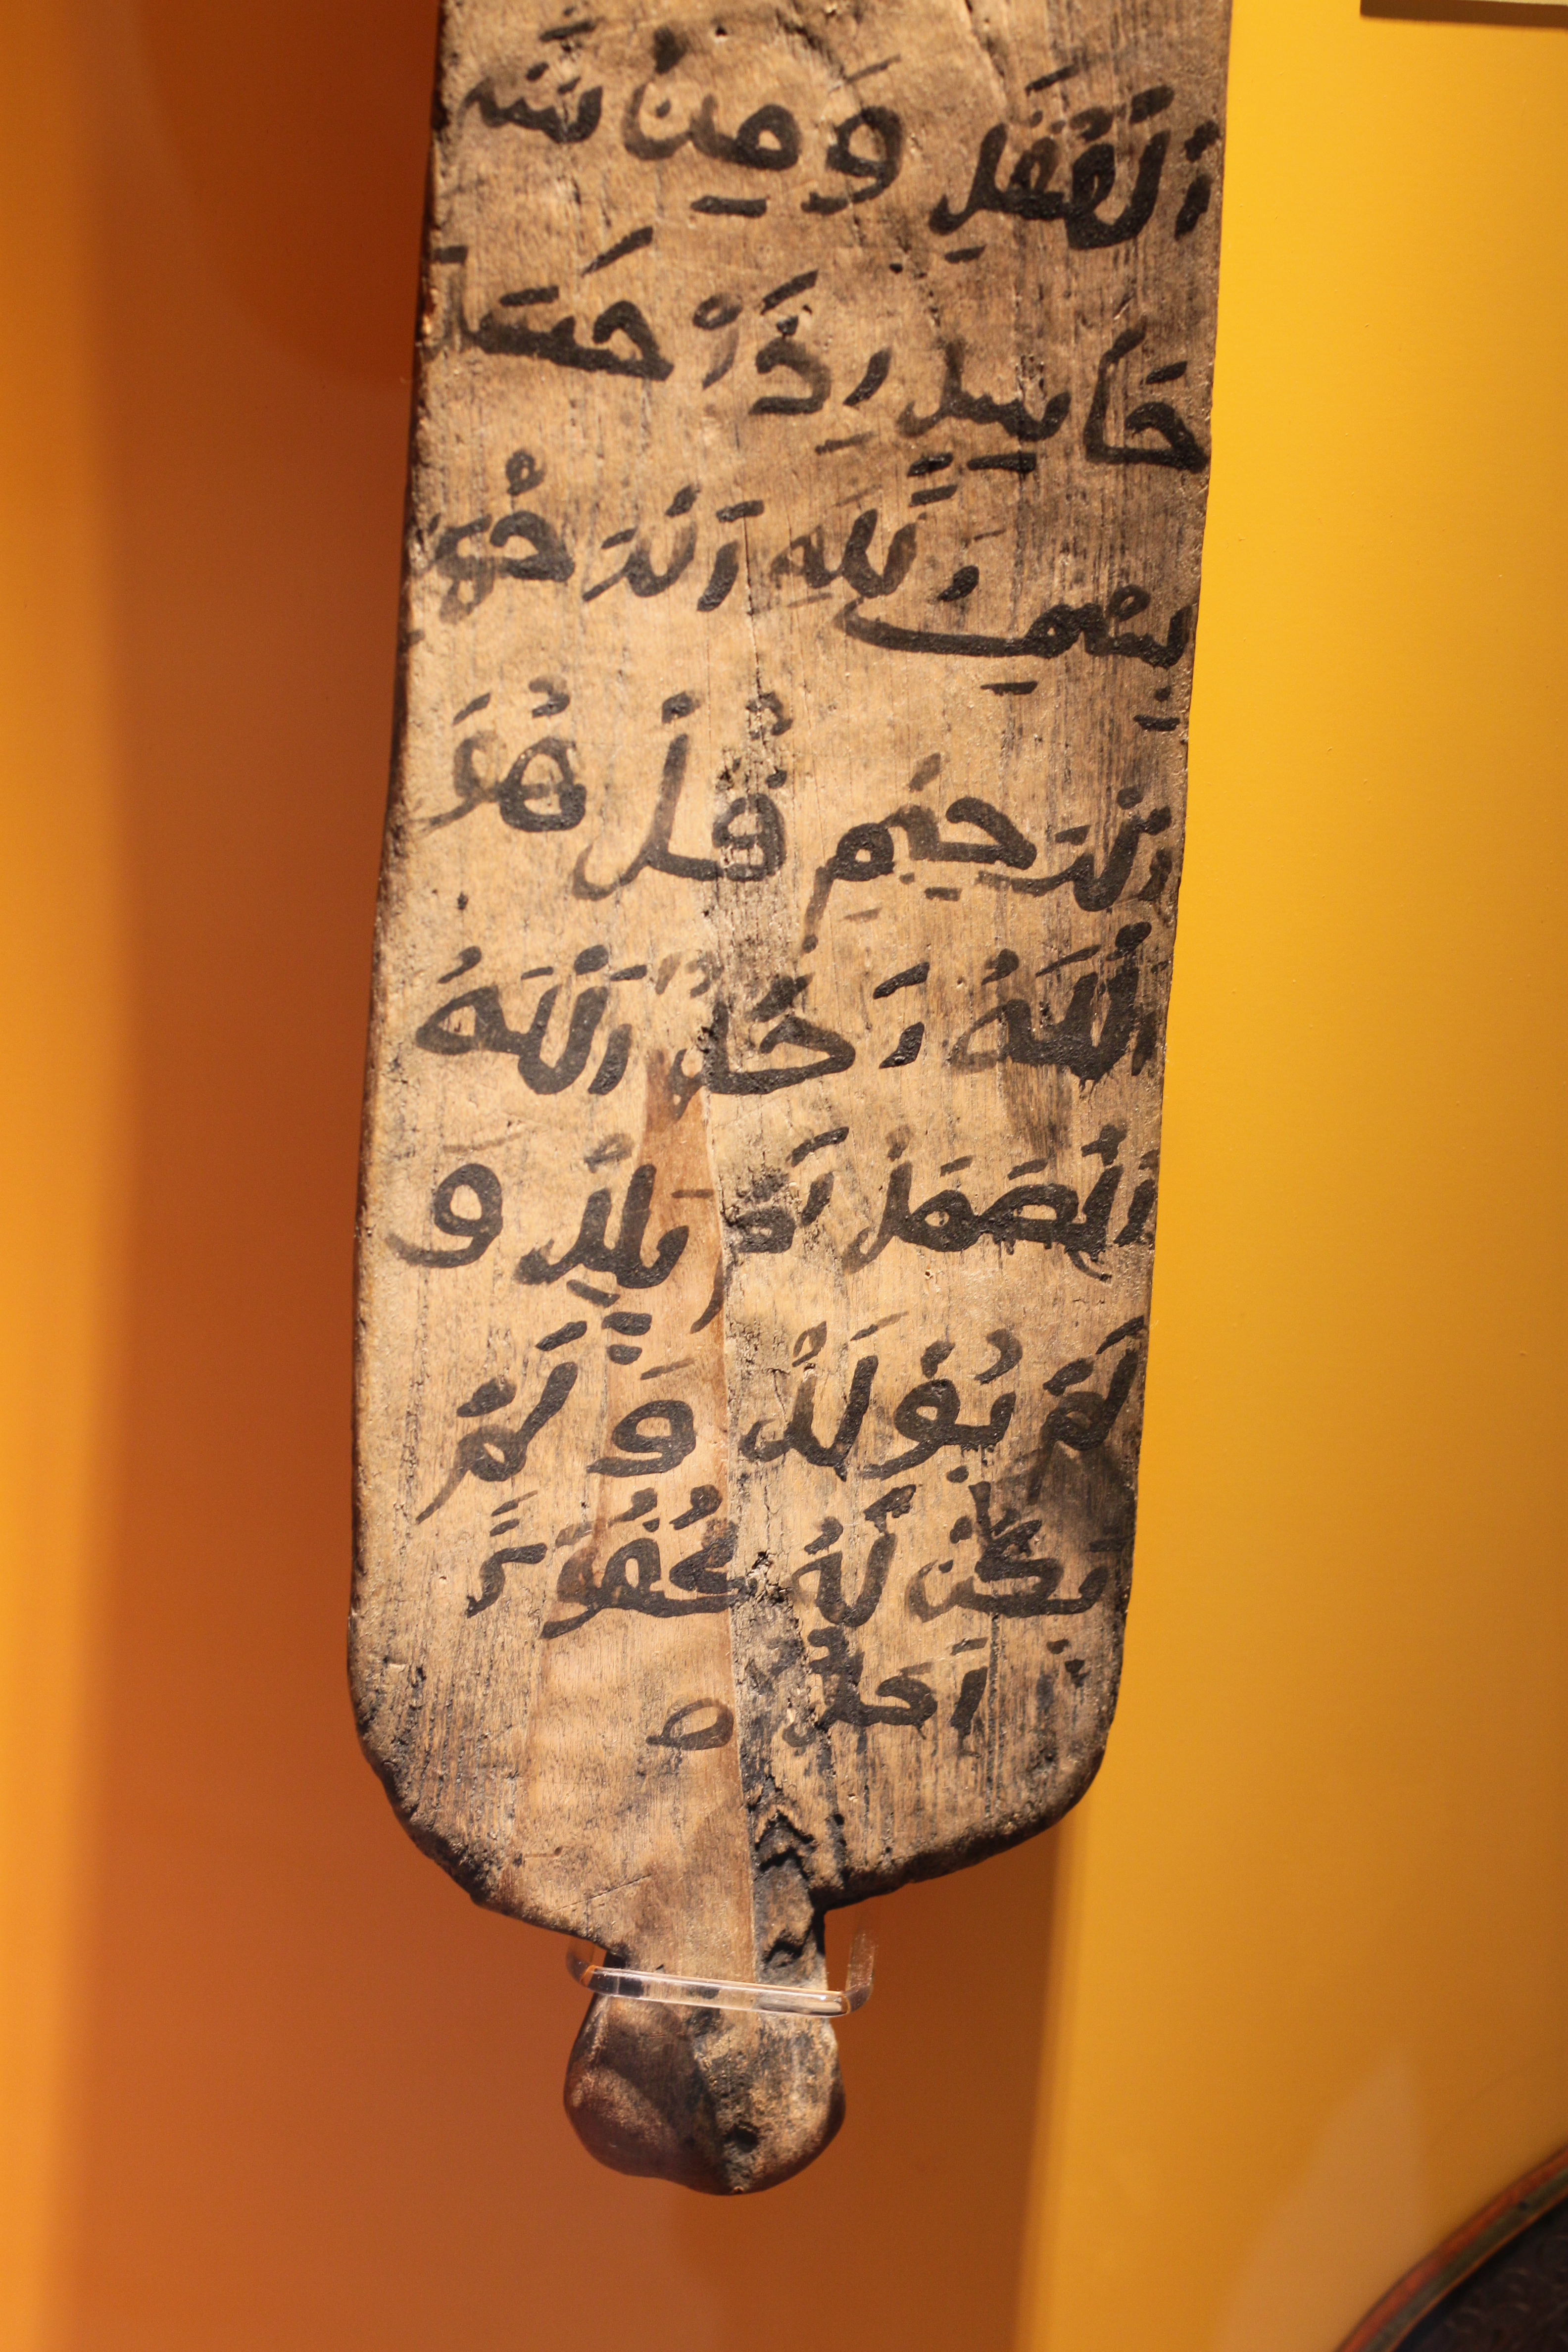 اَلْعُقَدِ وَمِن شَرِّ
حَاسِدٍ اِذَا حَسَدَ
بِسْمِ اللَّهِ اَلرَّحْمَنِ
اَلرَّحِيمِ قُلْ هُوَ
اَللَّهُ اَحَدٌ اَللَّهُ
اَلصَّمَدُ لَمْ يَلِدْ وَ
لَمْ يُولَدْ وَلَمْ
يَكُن لَّهُ كُفُوًا
اَحَدٌ ه